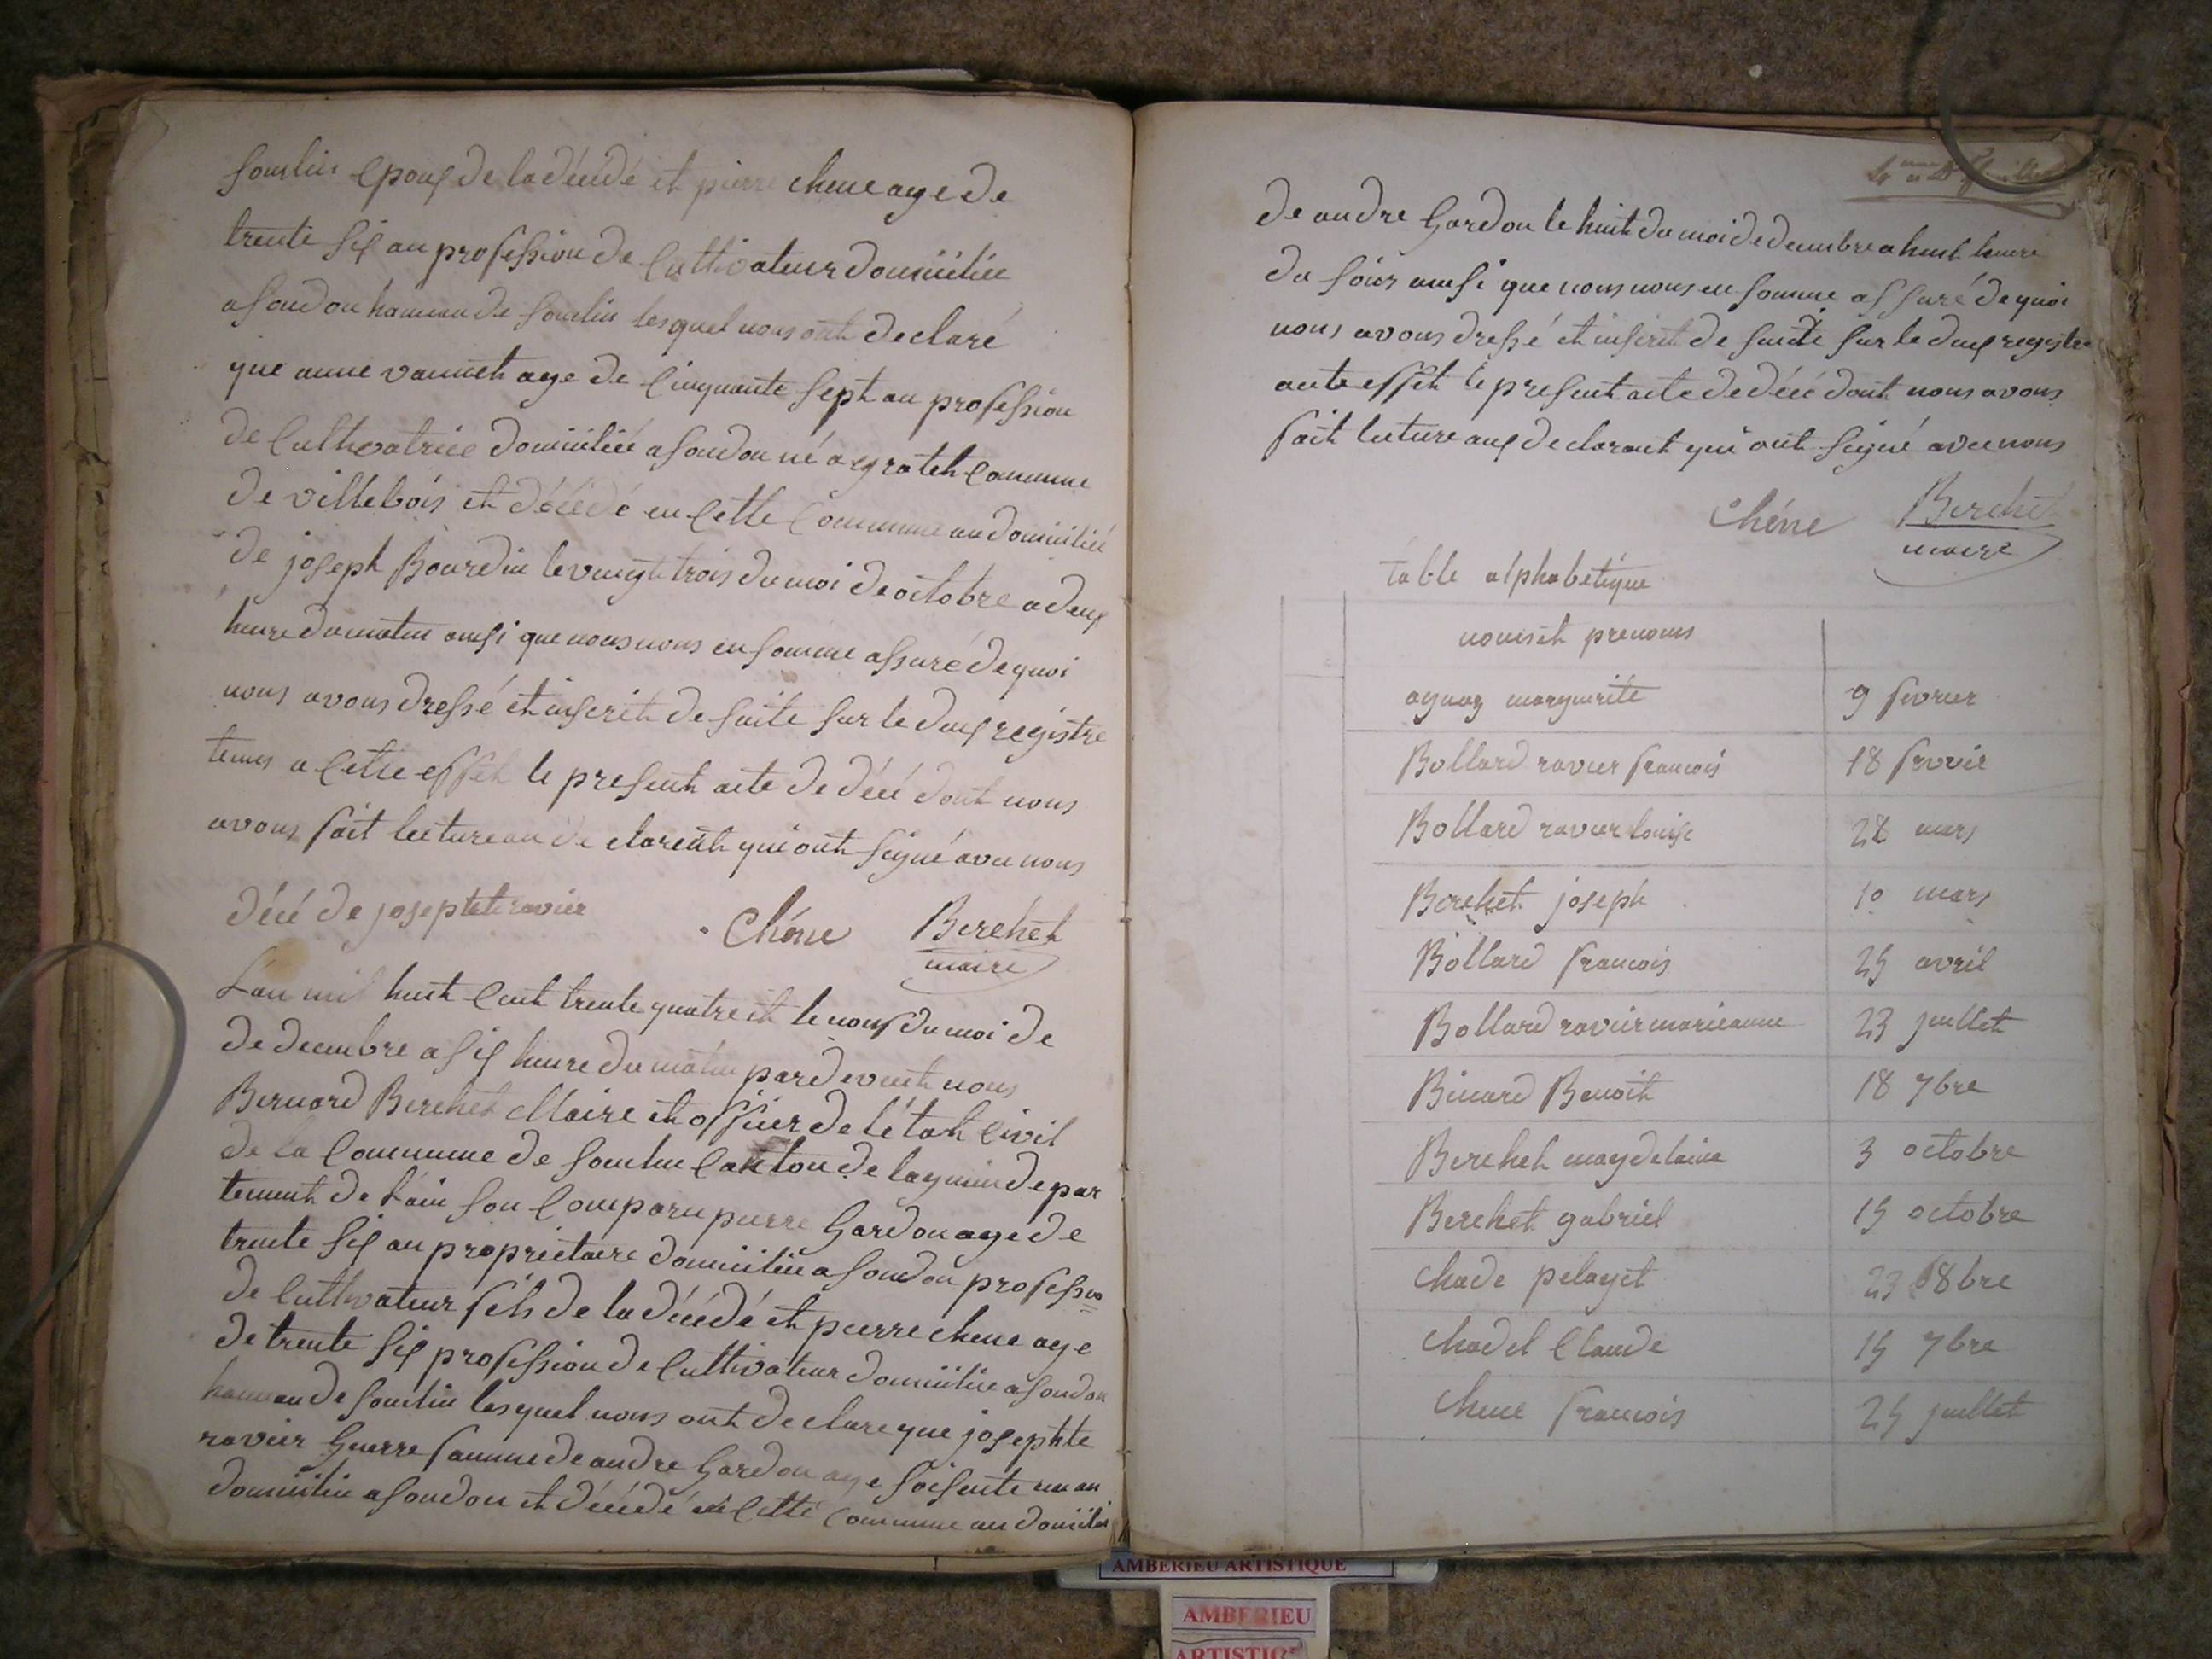 souclin epoux de la décédé et pierre chene age de
trente six an profession de Cultivateur domicilié
a soudon hameau de souclin lesquel nous ont declaré
que anne vannet age de Cinquante sept an profession
de Cultivatrice domicilié a soudon né a
commune
de villebois et décédé en Cette Commune au domicilié
de joseph Bourdin le vingt trois du moi de octobre a deux
heure du matin ausi que nous nous en somme assuré de quoi
nous avons dressé et inscrit de suite sur le doux registre
tenus a Cette effet le present acte de décé dont nous
avons fait lecture au declarent qui ont signé avec nous
décé de josephte ravier
Chêne Berchet
maire
Lan mil huit Cent trente quatre et le nouf du moi de
de decembre a six heure du matin pardevent nous
Bernard Berchet Maire et officier de létat Civil
de la Commune de souclin Canton de lagnieu depar
tement de l'ain son Comparu pierre Gardon age de
trente six an proprietaire domicilié a soudon profession
de Cultivateur fils de la décédé et pierre chene age
de trente six profession de Cultivateur domicilié a soudon
hameau de souclin lesquel nous ont declare que josephte
ravier Guerre famme de andre Gardon age soisente un an
domicilié a soudon et décédé en Cette Commune au domicilié
de andre Gardon le huit du moi de decembre a huit heure
du soir ausi que nous nous en somme assuré de quoi
nous avons dressé et inscrit de suite sur le doux registre
effet le present acte de décé dont nous avons
fait lecture aux declarant qui ont signé avec nous
Chêne Berchet
maire
table alphabetique
noms et prenoms
aguay marguerite 9 fevrier
Bollard ravier francois 18 fevrier
Bollard ravier louise 28 mars
Berchet joseph 10 mars
Bollard francois 25 avril
Bollard ravier marieanne 23 juillet
Binard Benoit 18 7bre
Berchet magdelaine 3 octobre
Berchet gabriel 15 octobre
Chade pelaget 23 8bre
Chadel Claude 15 7bre
Chene francois 25 juillet
AMBERIEU ARTISTIQUE
AMBERIEU